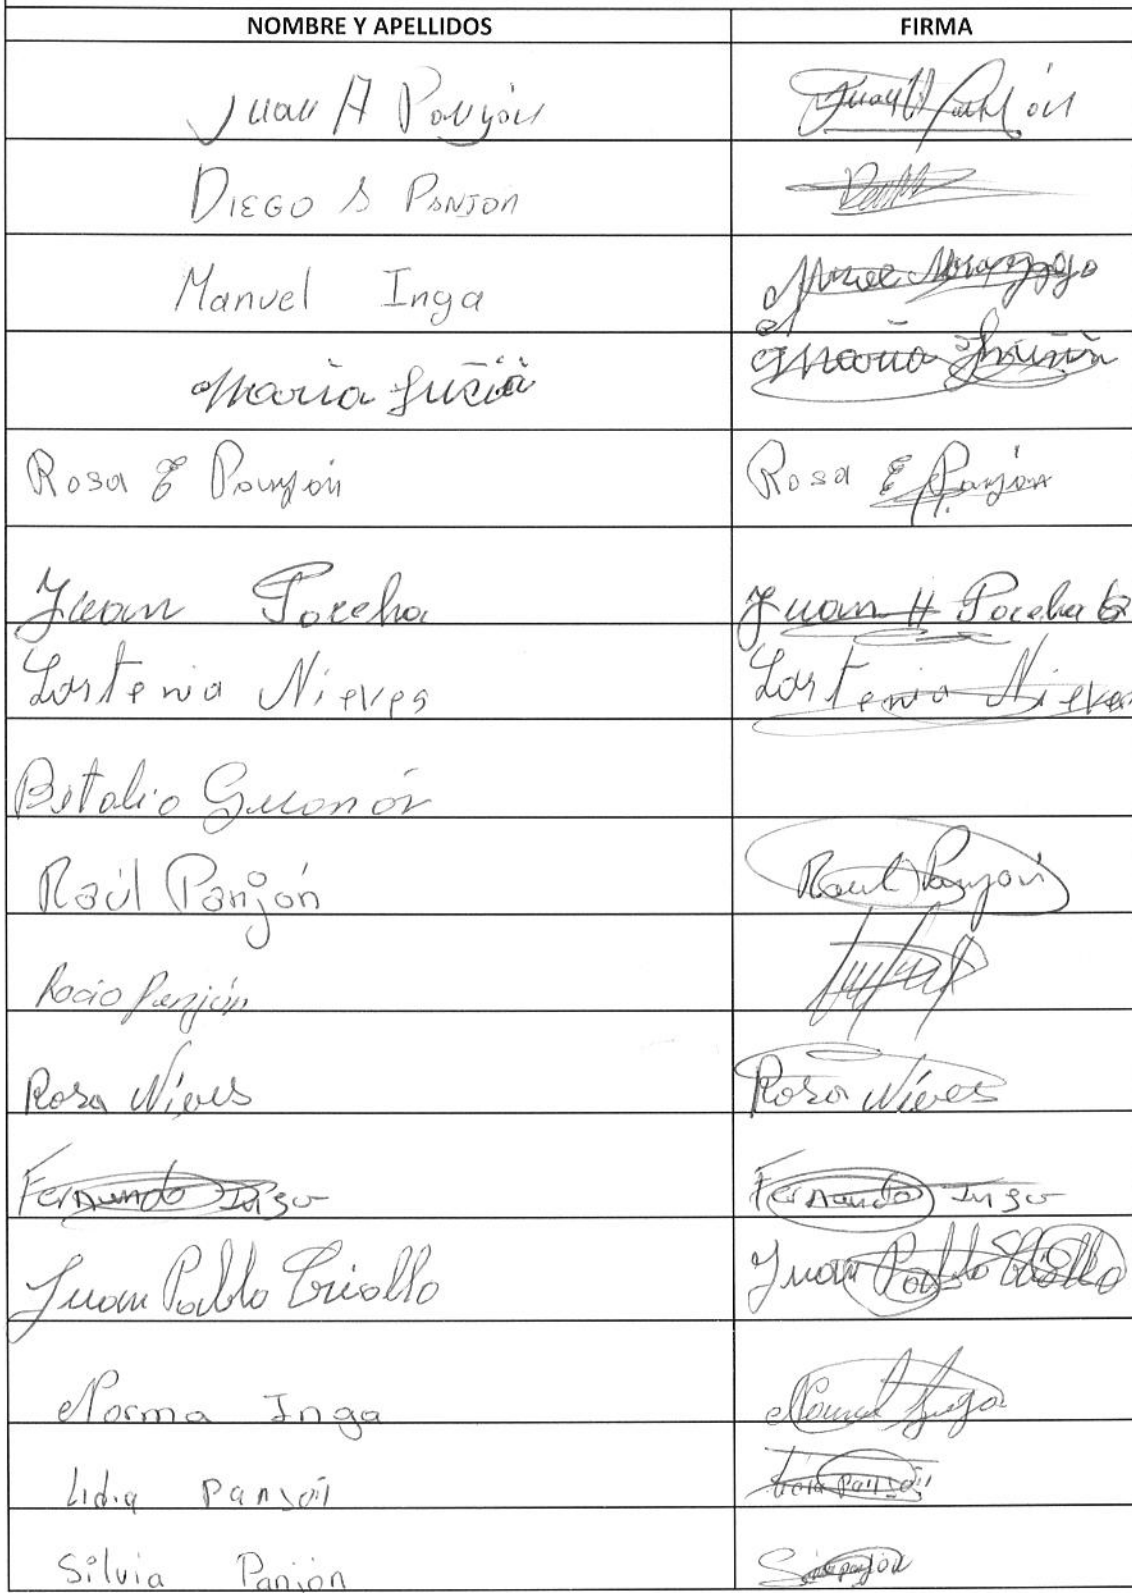 NOMBRE Y APELLIDOS FIRMA
Juan A Panjón Juan A Panjón
DIEGO S PANJON
Manuel Inga
Maria Maria
Rosa E Panjón Rosa E Panjón
Juan Pocha Juan H
Lastenia Nieves Lastenia Nieves
Bitalio Guamán
Raúl Panjón Raul Panjon
Rocio Panjón
Rosa Nieves Rosa Nieves
Fernando Inga Fernando Inga
Juan Pablo Criollo Juan Pablo Criollo
Norma Inga Inga
Lidia Panjón Panjón
Silvia Panjón